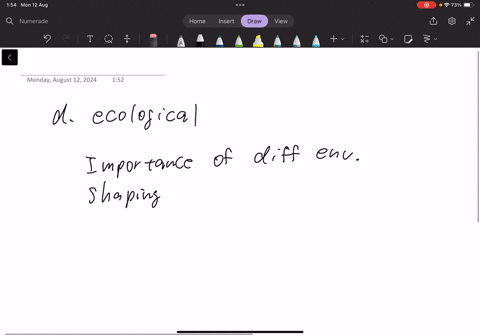 1:54 Mon 12 Aug
73%
Numerade
Home Insert Draw View
Monday, August 12, 2024 1:52
d. ecological
Importance of diff env.
shaping